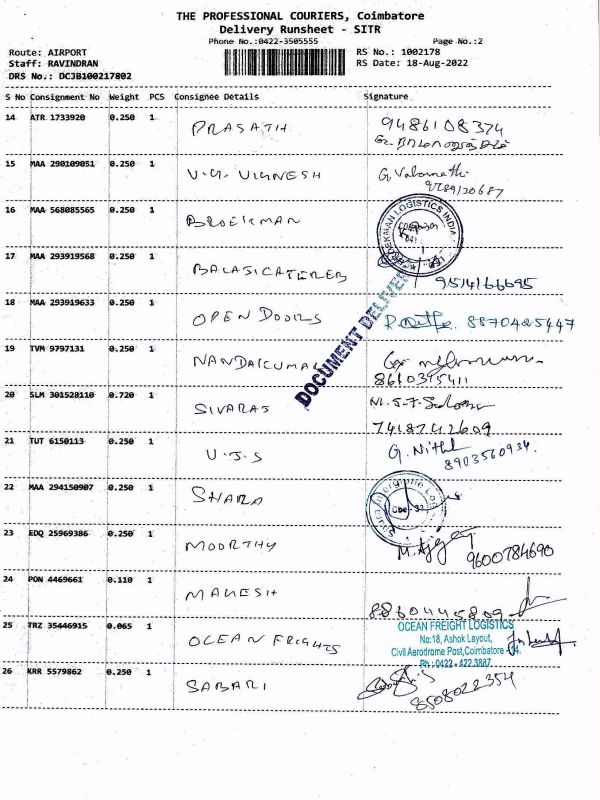 THE PROFESSIONAL COURIERS, Coimbatore
Delivery Runsheet - SITR
Phone No.:0422-3505555 Page No.:2
Route: AIRPORT RS No.: 1002178
Staff: RAVINDRAN RS Date: 18-Aug-2022
DRS No.: DCJB100217802
S No Consignment No Weight PCS Consignee Details Signature
14 ATR 1733920 0.250 1 PRASATH 9486108374
15 MAA 290109051 0.250 1 V.G. VIGNESH G.
9789130687
16 MAA 568085565 0.250 1 BROEKMAN BROEKMAN LOGISTICS INDIA
17 MAA 293919568 0.250 1 BALASICATERER 9514166695
DOCUMENT DELIVER
18 MAA 293919633 0.250 1 OPEN DOORS 8870425447
19 TVM 9797131 0.250 1 NANDAKUMA
8610395411
20 SLM 301528110 0.720 1 SIVARAJ
7418742609
21 TUT 6150113 0.250 1 V.J.S G. Nithl
8903560934.
22 MAA 294150907 0.250 1 SHARA
23 EDQ 25969386 0.250 1 MOORTHY 9600784690
24 PON 4469661 0.110 1 MAHESH
8860445809
25 TRZ 35446915 0.065 1 OCEAN FRIGHTS OCEAN FREIGHT LOGISTICS
No:18, Ashok Layout,
Civil Aerodrome Post, Coimbatore - 14.
Ph : 0422 - 422 3887
26 KRR 5579862 0.250 1 SABARI
8508022354